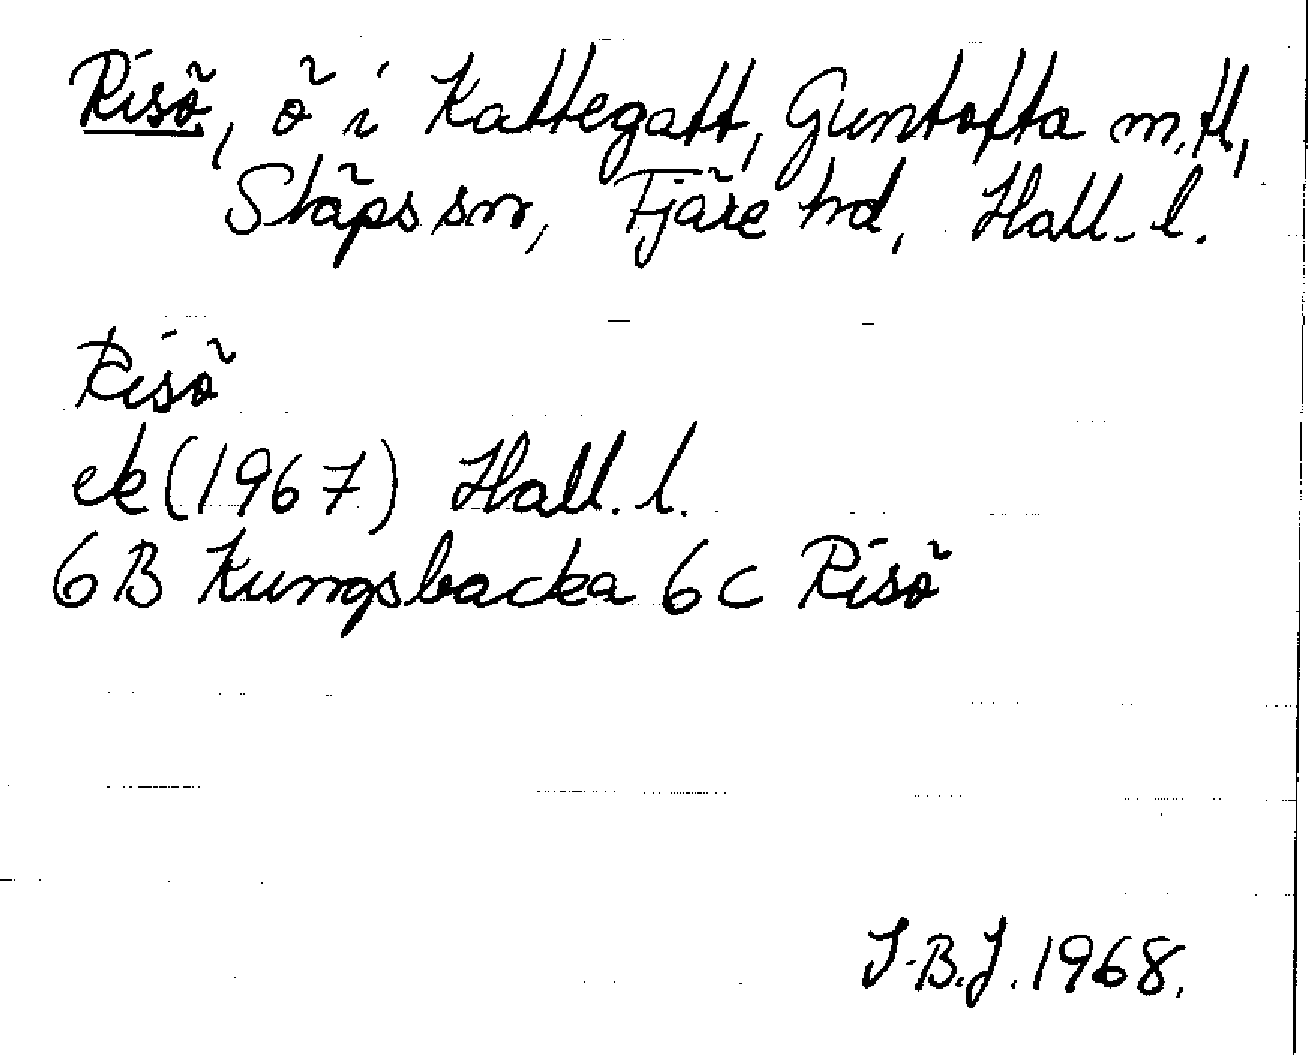 Risö, ö i Kattegatt, Guntofta m.fl,
Släps sn, Fjäre hd, Hall. l.
Risö
ek (1967) Hall. l.
6B Kungsbacka 6c Risö
I.B.J. 1968.